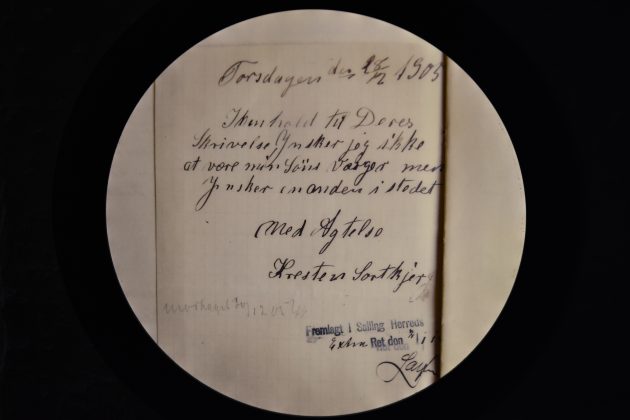 Torsdagen den 28/12 1905
I henhold til Deres
Skrivelse, Ynsker jeg ikke
at vere min Söns Værger men
Ynsker en anden i stedet
Med Agtelse
Kresten Sortkjer
Fremlagt i Salling Herreds
Extra Ret den